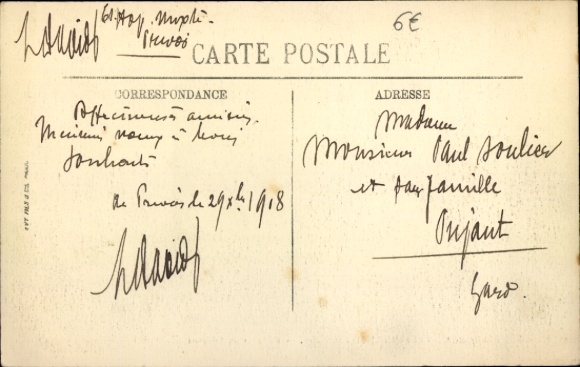 LDavid
Hop. Mixte
Privas
6€
CARTE POSTALE
CORRESPONDANCE
ADRESSE
Affectueuses amitiés.
Meilleurs vœux à tous
souhaits
de Privas le 29 Xbre 1918
LDavid
Madame
Monsieur Paul Soulier
et sa famille
Pujaut
Gard.